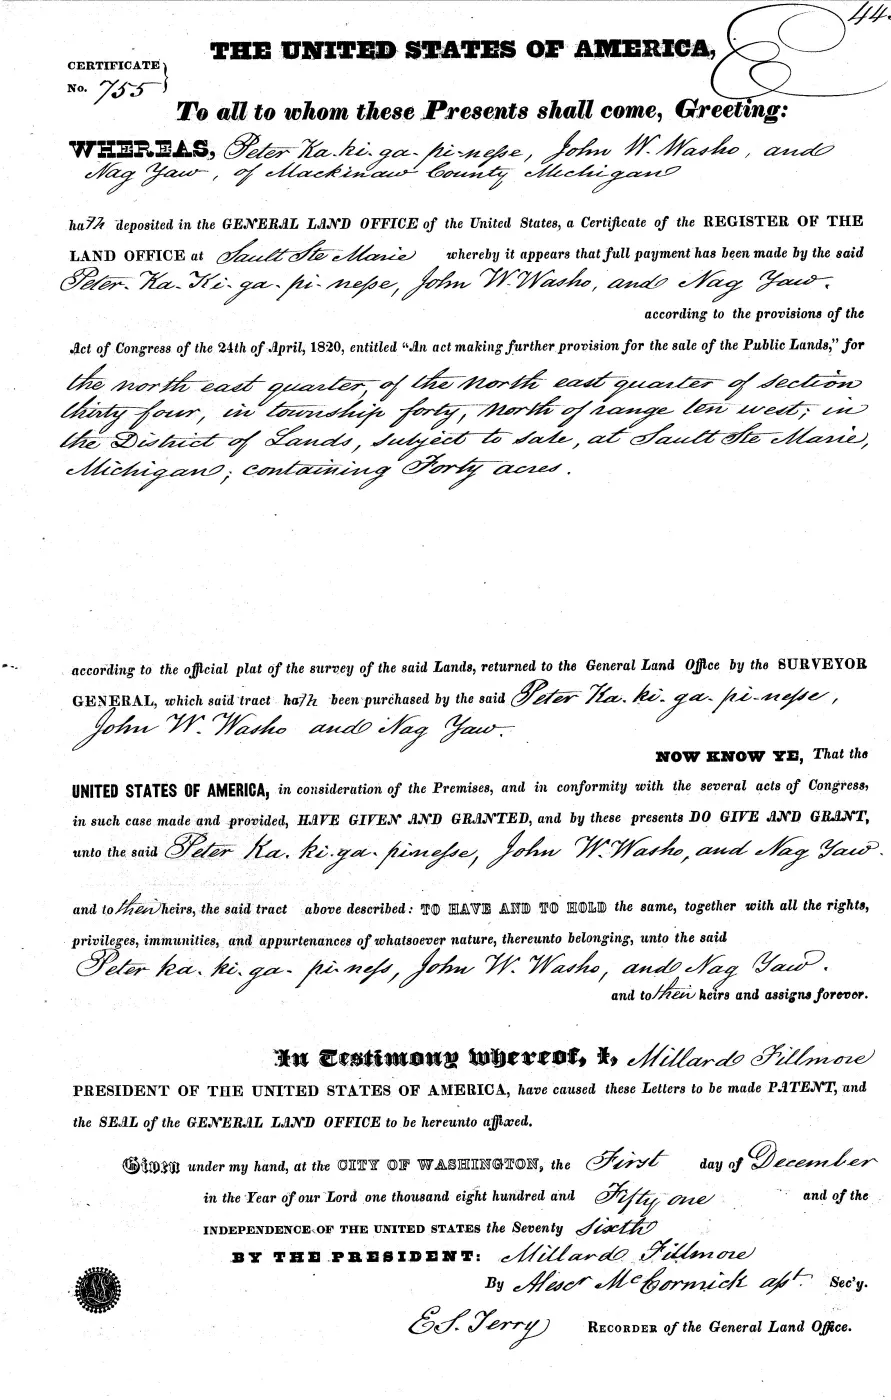 44
THE UNITED STATES OF AMERICA,
CERTIFICATE
No. 755
To all to whom these Presents shall come, Greeting:
WHEREAS, Peter Ka-ki-ga-pi-nesse, John W. Washo, and
Nag Yaw, of Mackinaw County Michigan
hath deposited in the GENERAL LAND OFFICE of the United States, a Certificate of the REGISTER OF THE
LAND OFFICE at Sault Ste Marie whereby it appears that full payment has been made by the said
Peter-Ka-Ki-ga-pi-nesse, John W. Washo, and Nag Yaw.
according to the provisions of the
Act of Congress of the 24th of April, 1820, entitled “An act making further provision for the sale of the Public Lands,” for
the north east quarter, of the north east quarter of section
thirty four, in township forty, north of range ten west; in
the District of Lands, subject to sale, at Sault Ste Marie,
Michigan; containing Forty acres.
according to the official plat of the survey of the said Lands, returned to the General Land Office by the SURVEYOR
GENERAL, which said tract hath been purchased by the said Peter Ka-ki-ga-pi-nesse,
John W. Washo and Nag Yaw.
NOW KNOW YE, That the
UNITED STATES OF AMERICA, in consideration of the Premises, and in conformity with the several acts of Congress,
in such case made and provided, HAVE GIVEN AND GRANTED, and by these presents DO GIVE AND GRANT,
unto the said Peter Ka-ki-ga-pinesse, John W. Washo, and Nag Yaw.
and to their heirs, the said tract above described: TO HAVE AND TO HOLD the same, together with all the rights,
privileges, immunities, and appurtenances of whatsoever nature, thereunto belonging, unto the said
Peter ka-ki-ga-pi-ness, John W. Washo, and Nag Yaw.
and to their heirs and assigns forever.
In Testimony whereof, I, Millard Fillmore
PRESIDENT OF THE UNITED STATES OF AMERICA, have caused these Letters to be made PATENT, and
the SEAL of the GENERAL LAND OFFICE to be hereunto affixed.
Given under my hand, at the CITY OF WASHINGTON, the First day of December
in the Year of our Lord one thousand eight hundred and Fifty one and of the
INDEPENDENCE OF THE UNITED STATES the Seventy Sixth
BY THE PRESIDENT: Millard Fillmore
By Alexr McCormick asst. Sec'y.
E S. Terry RECORDER of the General Land Office.